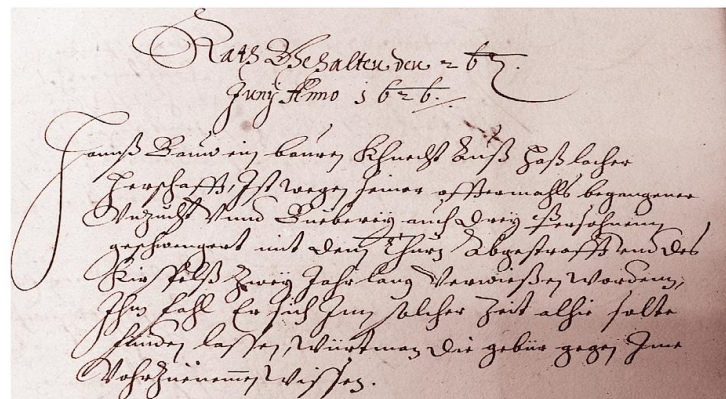 Rath Gehalten den 26t.
Junÿ Anno 1626.
Hannß Baur ein bauren Khnecht auß Haßlacher
Herschafft, Ist wegen seiner offtermahls begangener
Unzucht Vnnd Bueberey, auch dreÿ Persohnen
geschwengert mit dem Thurn Abgestrafft vnd des
Kirspelß Zweÿ Jahr lang Verwießen worden,
Ihm fahl Er sich Inn solcher Zeit alhie solte
finden lassen, Würt man die gebür gegen Ime
Vohrzuenemmen Wissen.